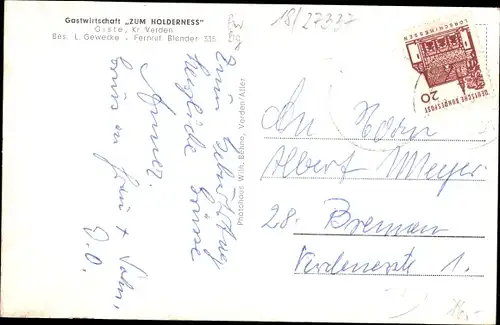 Gastwirtschaft „ZUM HOLDERNESS"
Giste, Kr Verden
Bes. L. Gewecke • Fernruf Blender 335
18/27337
Zum Geburtstag
Herzliche Grüsse
Gruss an Frau + Sohn,
Photohaus Wilh. Behne, Verden/Aller
LORSCH/HESSEN
DEUTSCHE BUNDESPOST
20
An Herrn
Albert Meyer
28. Bremen
Verdenerstr 1.